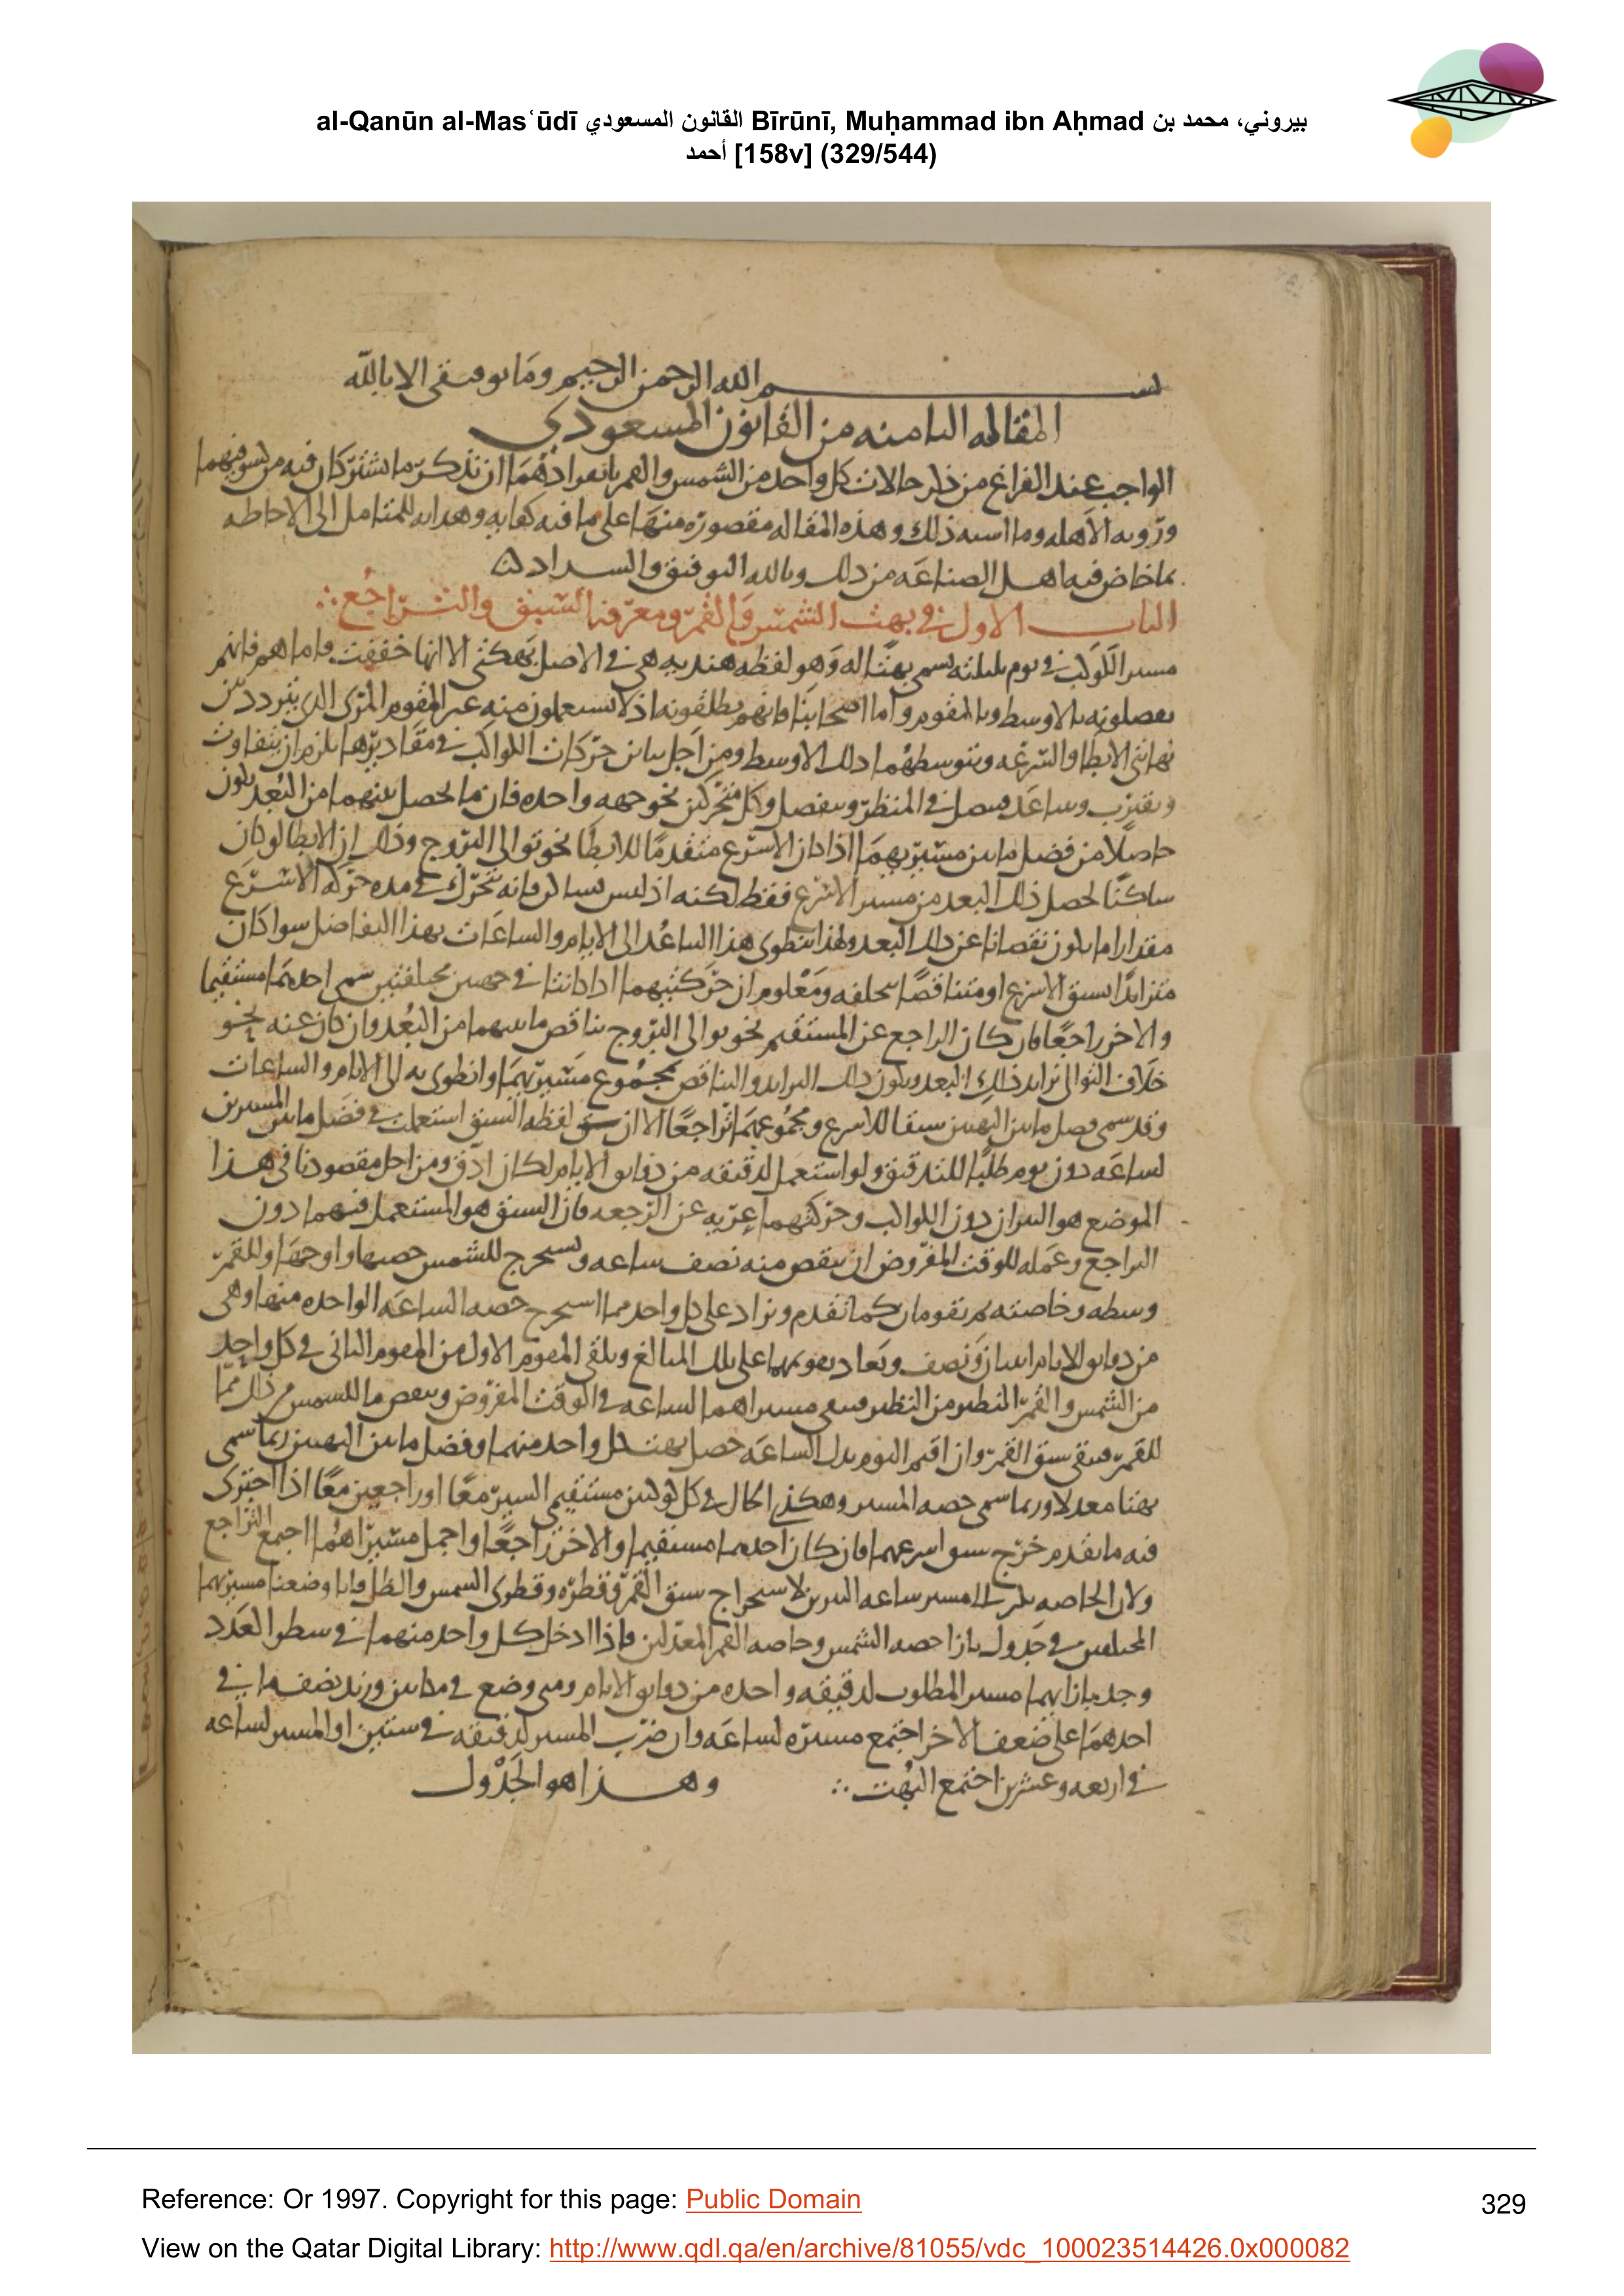 al-Qanūn al-Masʿūdī القانون المسعودي Bīrūnī, Muḥammad ibn Aḥmad بيروني، محمد بن
أحمد [158v] (329/544)
بسم الله الرحمن الرحيم وما توفيقي الا بالله
المقاله الثامنه من القانون المسعودي
الواجب عند الفراغ من ذكر حالات كل واحد من الشمس والقمر بانفرادهما ان نذكر ما يشتركان فيه من كسوفيهما
ورؤيه الاهله وما اشبه ذلك وهذه المقاله مقصوره منها على ما فيه كفايه وهدايه للمتامل الى الاحاطه
بما خاض فيه اهل الصناعه من ذلك وبالله التوفيق والسداد
الباب الاول في بهت الشمس والقمر ومعرفة السبق والتراجع
مسير الكوكب في يوم بليلته يسمى بهتا له وهو لفظه هنديه هي في الاصل بهكتى الا انها خففت فاما هم فانهم
يفصلونه بالاوسط وبالمقوم واما اصحابنا فانهم يطلقونه اذ لا يستعملون منه غير المقوم المرئى الذي يتردد بين
نهايتى الابطا والسرعه ويتوسطهما ذلك الاوسط ومن اجل تباين حركات الكواكب في مقاديرها يلزم ان يتفاوت
ويقترب ويتباعد ويتصل في المنظر وينفصل وكل متحركين نحو جهه واحده فان ما يحصل بينهما من البعد يكون
حاصلا من فضل ما بين مسيريهما اذا كان الاسرع متقدما للابطا نحو توالى البروج وذلك ان الابطا لو كان
ساكنا لحصل ذلك البعد من مسير الاسرع فقط لكنه اذ ليس بساكن فانه يتحرك في مده حركه الاسرع
مقدارا ما يكون نقصانا عن ذلك البعد ولهذا ينطوى هذا التباعد الى الايام والساعات بهذا التفاضل سوا كان
متزايدا بسبق الاسرع او متناقصا بتخلفه ومعلوم ان حركتيهما اذا كانتا في جهتين مختلفتين سمى احدهما مستقيما
والاخر راجعا فان كان الراجع عن المستقيم نحو توالى البروج تناقص ما بينهما من البعد وان كان عنه نحو
خلاف التوالى تزايد ذلك البعد ويكون ذلك التزايد والتناقص بمجموع مسيريهما وانطوى به الى الايام والساعات
وقد سمى فضل ما بين البهتين سبقا للاسرع ومجموعهما تراجعا الا ان لفظه السبق استعملت في فضل ما بين المسيرين
لساعه دون يوم طلبا للتدقيق ولو استعمل لدقيقه من دقايق الايام لكان ادق ومن اجل مقصودنا في هذا
الموضع هو النيران دون الكواكب وحركتهما عريه عن الرجعه فان السبق هو المستعمل فيهما دون
التراجع وعمله للوقت المفروض ان ينقص منه نصف ساعه ويستخرج للشمس حصتها واوجها وللقمر
وسطه وخاصته ثم يقومان كما تقدم ويزاد على كل واحد مما استخرج حصه الساعه الواحده منها وهى
من دقايق الايام اثنان ونصف ويعاد تقويمهما على تلك المبالغ ويلقى المقوم الاول من المقوم الثانى في كل واحد
من الشمس والقمر النظير من النظير فيبقى مسيراهما لساعه في الوقت المفروض وينقص ما للشمس من ذلك مما
للقمر فيبقى سبق القمر وان اقيم اليوم بدل الساعه حصل بهت كل واحد منهما وفضل ما بين البهتين ربما سمى
بهتا معدلا وربما سمى حصه المسير وهكذا الحال في كل كوكبين مستقيمى السير معا او راجعين معا اذا اجترى
فيه ما تقدم خرج سبق اسرعهما فان كان احدهما مستقيما والاخر راجعا واجمل مسيراهما اجمع التراجع
ولان الحاصه مسير ساعه النيرين لاستخراج سبق القمر وقطره وقطرى الشمس والظل فانا وضعنا مسيريهما
المختلفين في جدول بازا حصه الشمس وخاصه القمر المعدلين فاذا ادخل كل واحد منهما في سطر العدد
وجد بازايهما مسير المطلوب لدقيقه واحده من دقايق الايام ومتى وضع في مكانين وزيد نصف ما في
احدهما على ضعف الاخر اجتمع مسيره لساعه وان ضرب المسير لدقيقه في ستين او المسير لساعه
في اربعه وعشرين اجتمع البهت وهذا هو الجدول
Reference: Or 1997. Copyright for this page: Public Domain
329
View on the Qatar Digital Library: http://www.qdl.qa/en/archive/81055/vdc_100023514426.0x000082